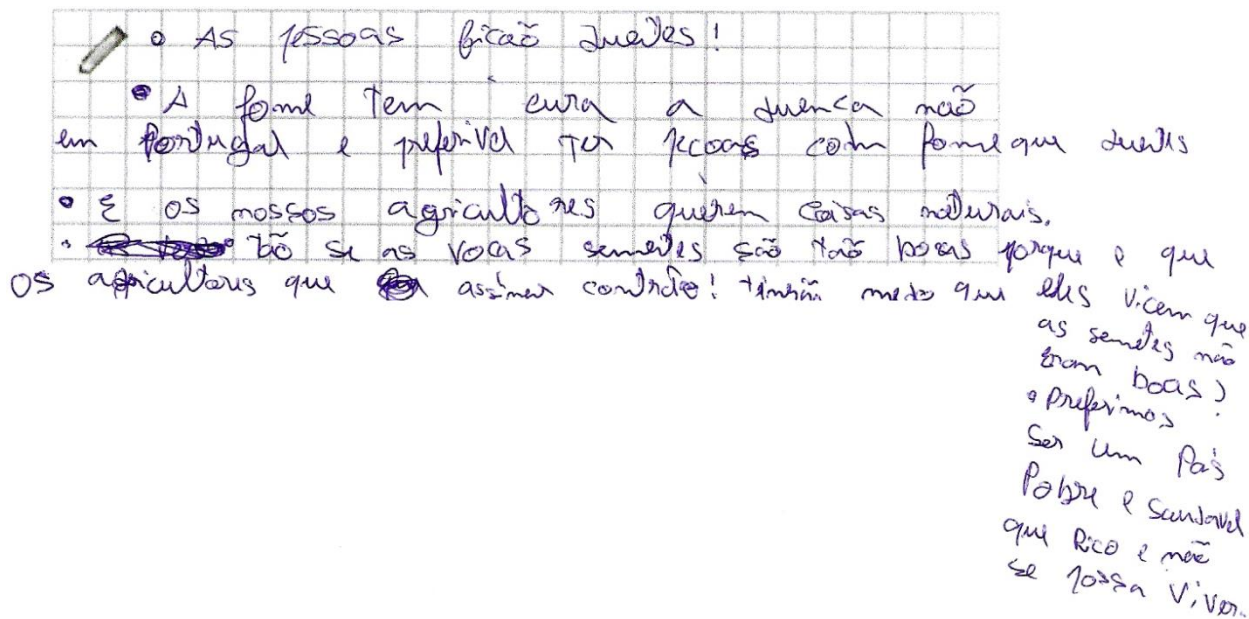 • As pessoas ficaõ duentes!
• A fome tem cura a duenca naõ
em Portugal e preferivel ter pecoas com fome que duentes
• E os nossos agricultores querem coisas naturais.
• tão se as vocas sementes saõ taõ boas porque e que
os agricultores que assinar contrato! tinhão medo que eles vicem que
as sementes não
eram boas?
• Preferimos
Ser um País
Pobre e Saudavel
que Rico e naõ
se possa viver.